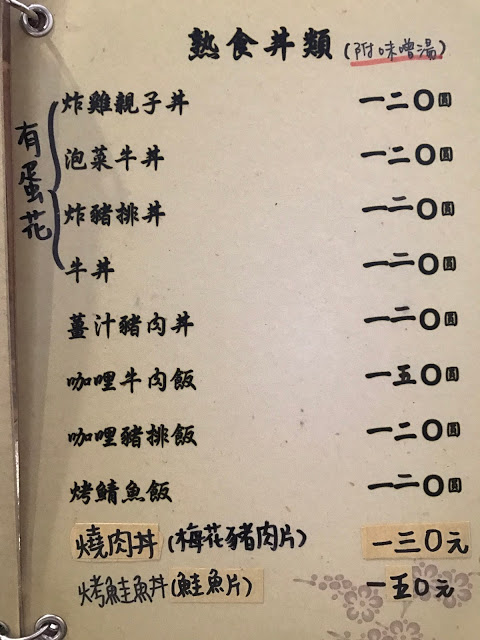 熟食丼類(附味噌湯)
有蛋花
炸雞親子丼 一二〇圓
泡菜牛丼 一二〇圓
炸豬排丼 一二〇圓
牛丼 一二〇圓
薑汁豬肉丼 一二〇圓
咖哩牛肉飯 一五〇圓
咖哩豬排飯 一二〇圓
烤鯖魚飯 一二〇圓
燒肉丼(梅花豬肉片) 一三〇元
烤鮭魚丼(鮭魚片) 一五〇元